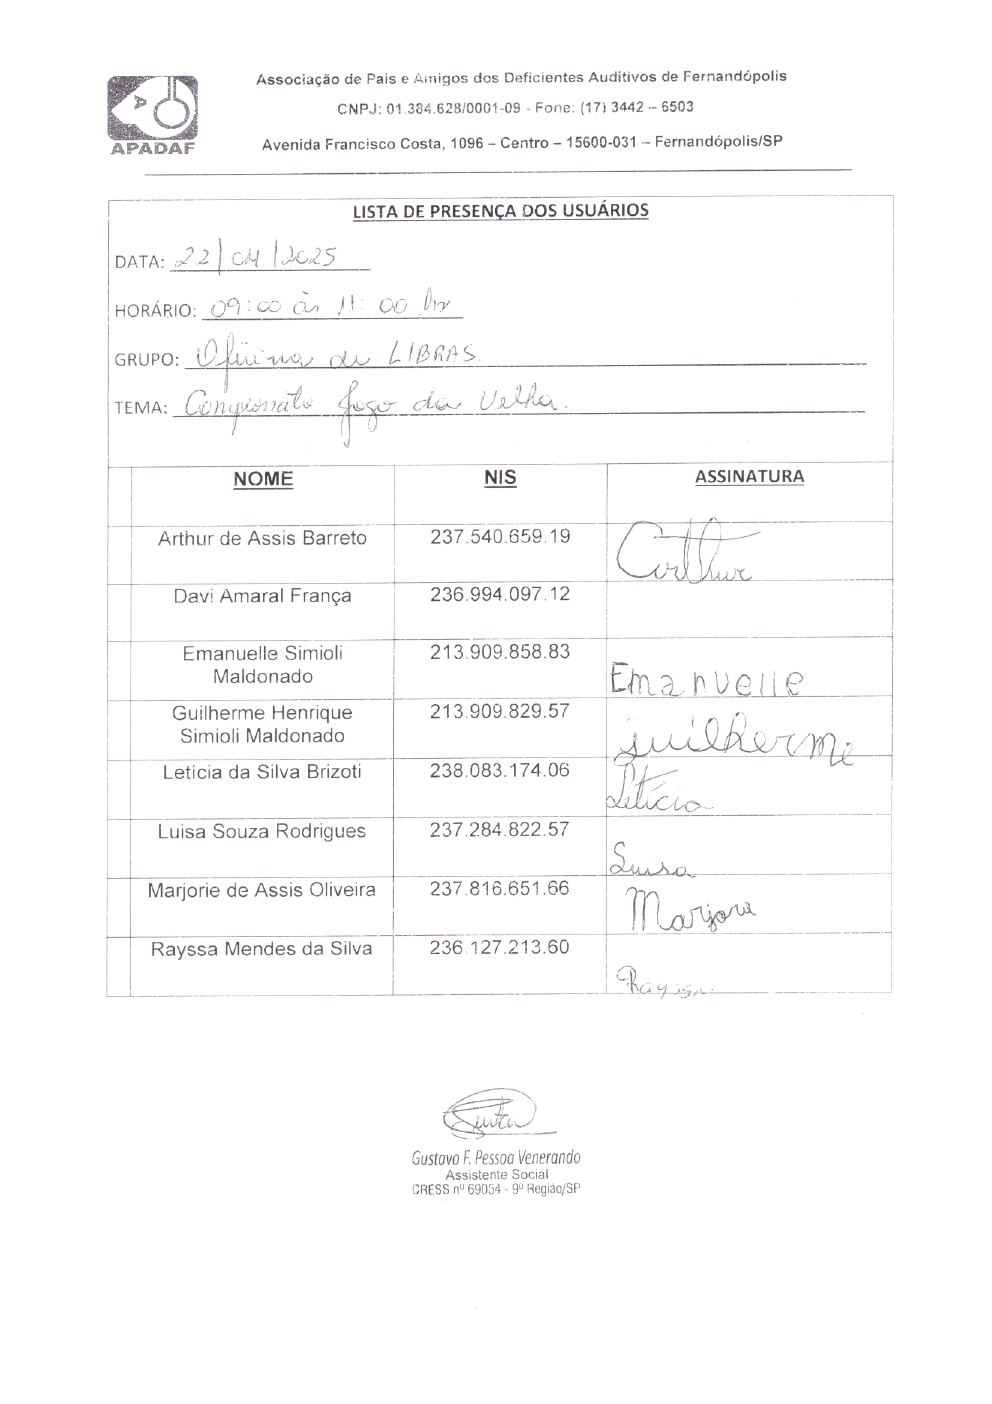 Associação de Pais e Amigos dos Deficientes Auditivos de Fernandópolis
CNPJ: 01.384.628/0001-09 - Fone: (17) 3442 – 6503
APADAF
Avenida Francisco Costa, 1096 – Centro – 15600-031 – Fernandópolis/SP
LISTA DE PRESENÇA DOS USUÁRIOS
DATA: 22/04/2025
HORÁRIO: 09:00 às 11:00 hr
GRUPO: Oficina de LIBRAS.
TEMA: Campeonato Jogo da Velha.
NOME NIS ASSINATURA
Arthur de Assis Barreto 237.540.659.19 Arthur
Davi Amaral França 236.994.097.12
Emanuelle Simioli 213.909.858.83
Maldonado Emanuelle
Guilherme Henrique 213.909.829.57
Simioli Maldonado Guilherme
Letícia da Silva Brizoti 238.083.174.06 Letícia
Luisa Souza Rodrigues 237.284.822.57 Luisa
Marjorie de Assis Oliveira 237.816.651.66 Marjorie
Rayssa Mendes da Silva 236.127.213.60 Rayssa
Gustavo F. Pessoa Venerando
Assistente Social
CRESS nº 69054 - 9º Região/SP